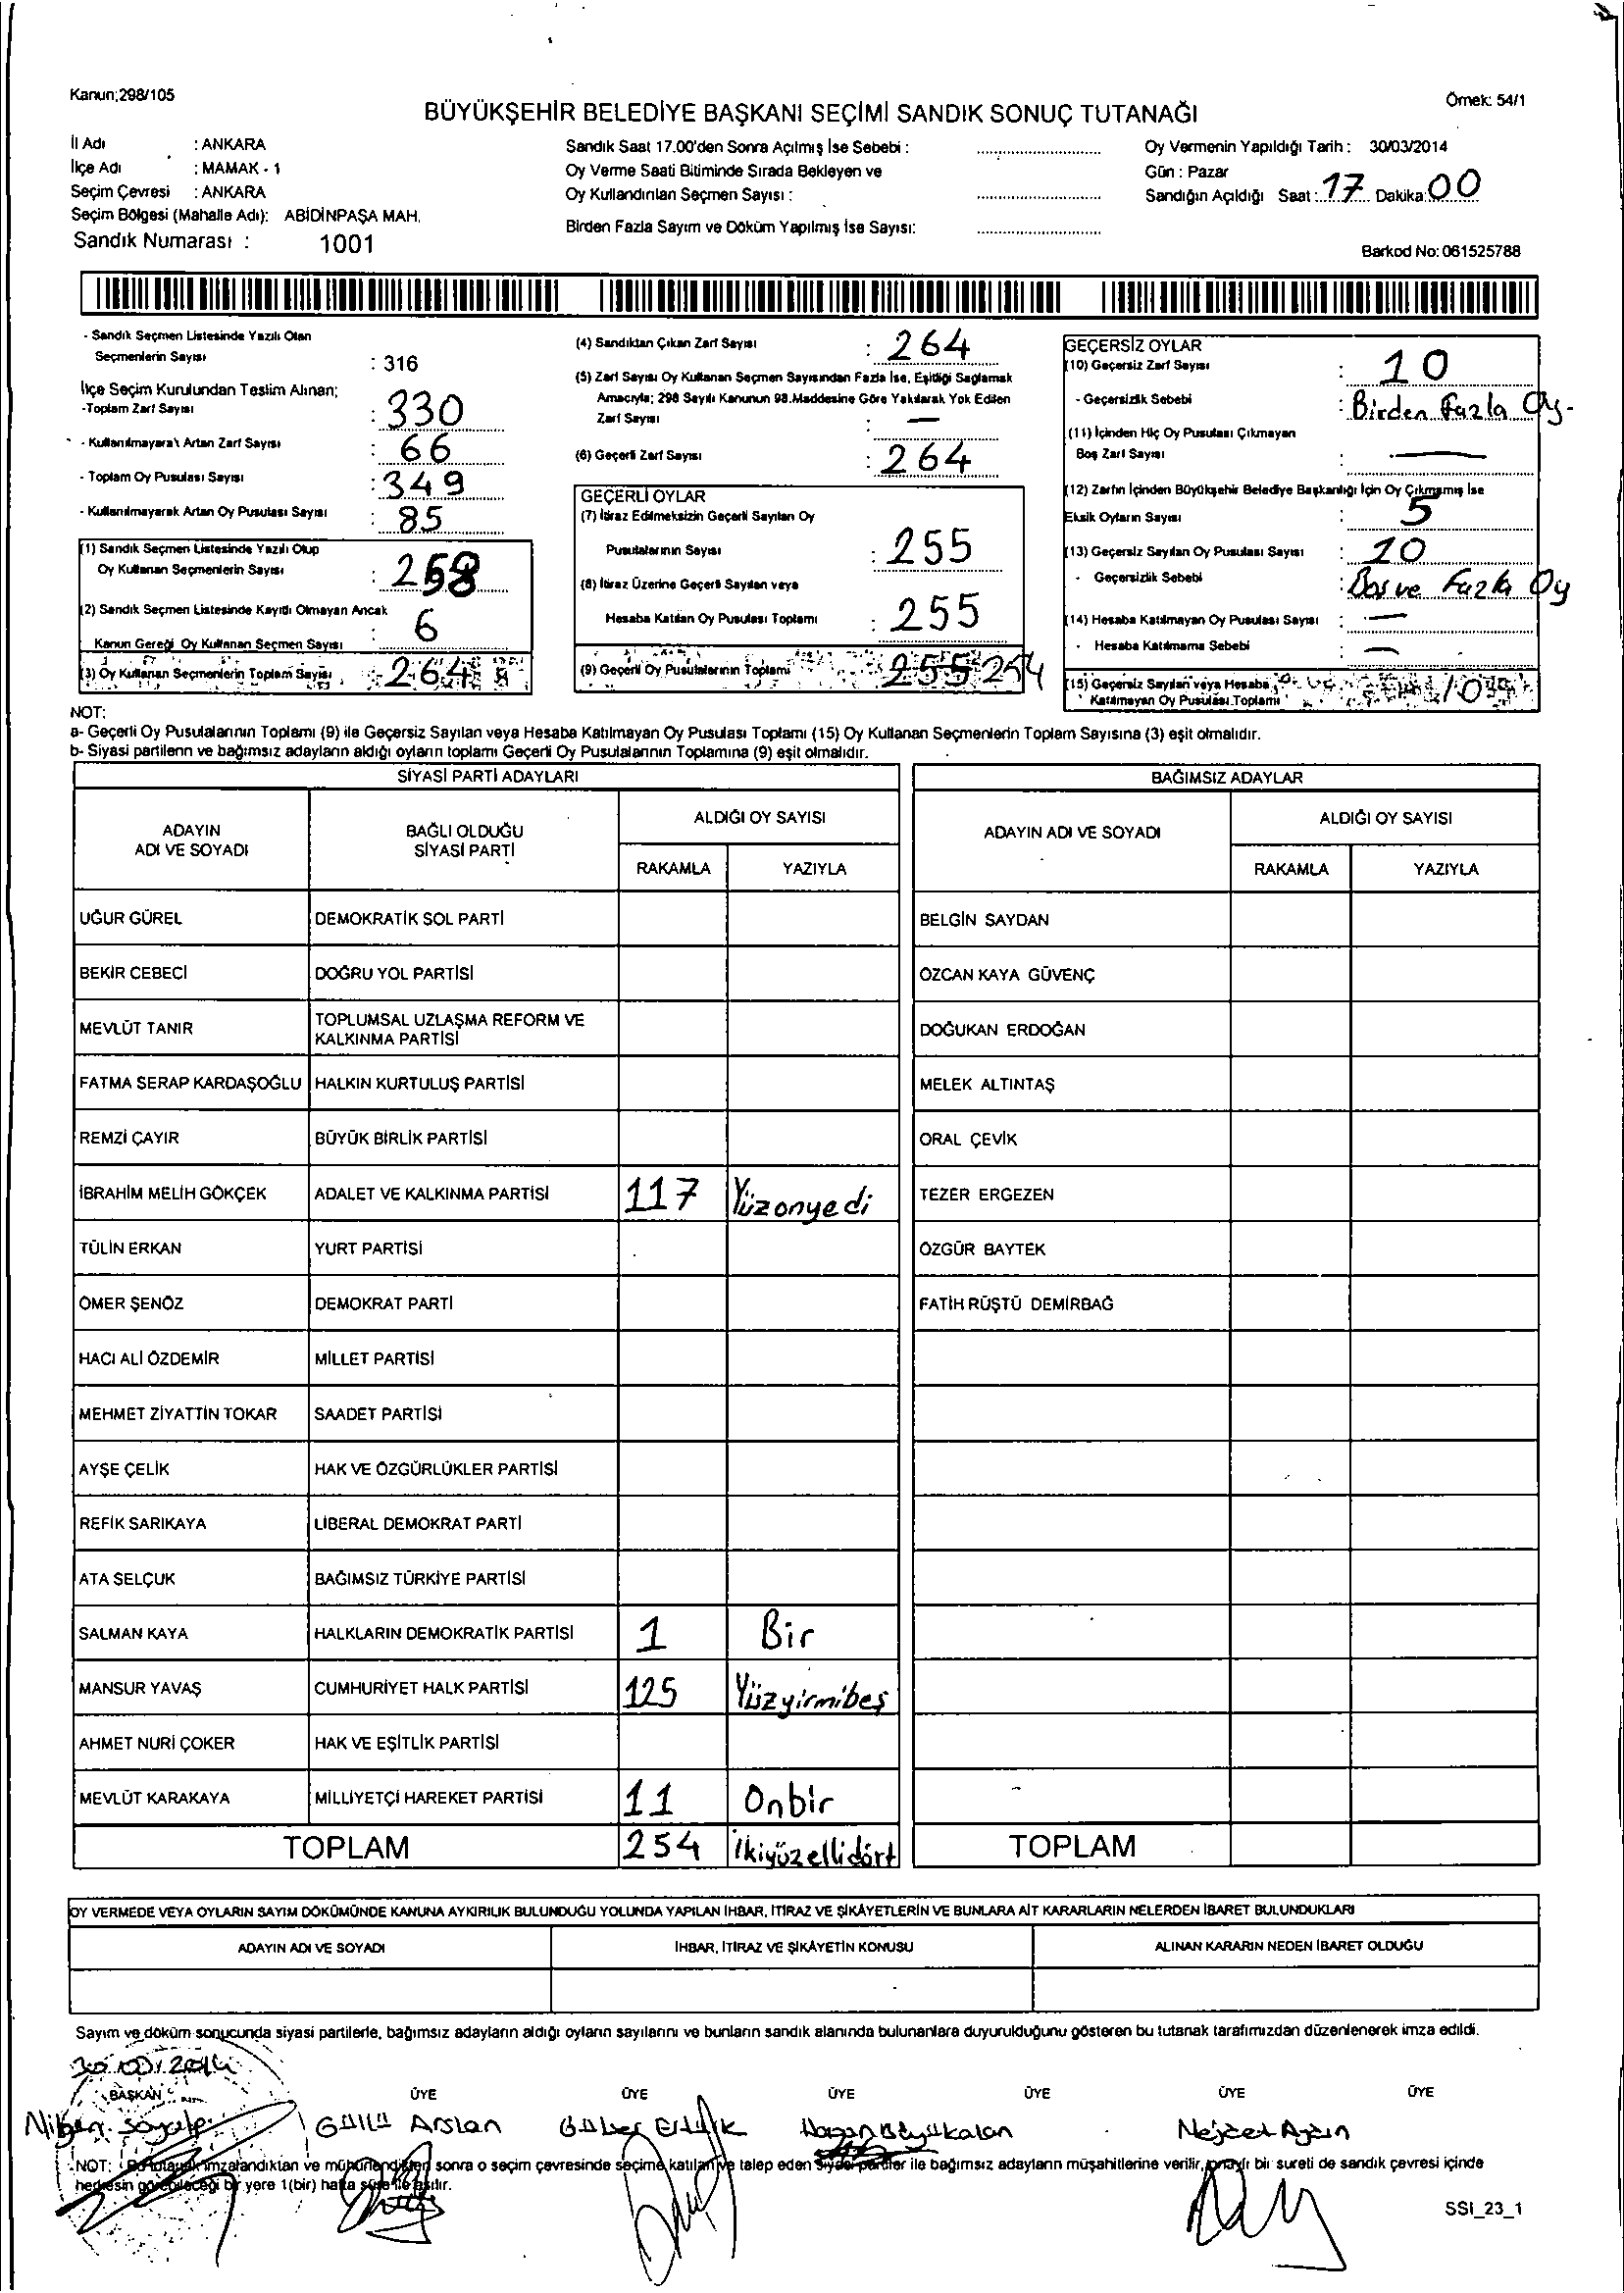 Kanun;298/105
Örnek: 54/1
BÜYÜKŞEHİR BELEDİYE BAŞKANI SEÇİMİ SANDIK SONUÇ TUTANAĞI
İl Adı : ANKARA
İlçe Adı : MAMAK - 1
Seçim Çevresi : ANKARA
Seçim Bölgesi (Mahalle Adı): ABİDİNPAŞA MAH.
Sandık Numarası : 1001
Sandık Saat 17.00'den Sonra Açılmış İse Sebebi :
Oy Verme Saati Bitiminde Sırada Bekleyen ve
Oy Kullandırılan Seçmen Sayısı :
Birden Fazla Sayım ve Döküm Yapılmış İse Sayısı:
Oy Vermenin Yapıldığı Tarih : 30/03/2014
Gün : Pazar
Sandığın Açıldığı Saat : 17 Dakika: 00
Barkod No: 061525788
- Sandık Seçmen Listesinde Yazılı Olan
Seçmenlerin Sayısı : 316
İlçe Seçim Kurulundan Teslim Alınan;
-Toplam Zarf Sayısı : 330
- Kullanılmayarak Artan Zarf Sayısı : 66
- Toplam Oy Pusulası Sayısı : 349
- Kullanılmayarak Artan Oy Pusulası Sayısı : 85
(1) Sandık Seçmen Listesinde Yazılı Olup
Oy Kullanan Seçmenlerin Sayısı : 258
(2) Sandık Seçmen Listesinde Kayıtlı Olmayan Ancak
Kanun Gereği Oy Kullanan Seçmen Sayısı : 6
(3) Oy Kullanan Seçmenlerin Toplam Sayısı : 264
(4) Sandıktan Çıkan Zarf Sayısı : 264
(5) Zarf Sayısı Oy Kullanan Seçmen Sayısından Fazla İse, Eşitliği Sağlamak
Amacıyla; 298 Sayılı Kanunun 98.Maddesine Göre Yakılarak Yok Edilen
Zarf Sayısı : —
(6) Geçerli Zarf Sayısı : 264
GEÇERLİ OYLAR
(7) İtiraz Edilmeksizin Geçerli Sayılan Oy
Pusulalarının Sayısı : 255
(8) İtiraz Üzerine Geçerli Sayılan veya
Hesaba Katılan Oy Pusulası Toplamı : 255
(9) Geçerli Oy Pusulalarının Toplamı : 255 254
GEÇERSİZ OYLAR
(10) Geçersiz Zarf Sayısı : 10
- Geçersizlik Sebebi : Birden Fazla Oy-
(11) İçinden Hiç Oy Pusulası Çıkmayan
Boş Zarf Sayısı : —
(12) Zarfın İçinden Büyükşehir Belediye Başkanlığı İçin Oy Çıkmamış İse
Eksik Oyların Sayısı : 5
(13) Geçersiz Sayılan Oy Pusulası Sayısı : 10
- Geçersizlik Sebebi : Boş ve Fazla Oy
(14) Hesaba Katılmayan Oy Pusulası Sayısı : —
- Hesaba Katılmama Sebebi : —
(15) Geçersiz Sayılan veya Hesaba
Katılmayan Oy Pusulası Toplamı 10
NOT:
a- Geçerli Oy Pusulalarının Toplamı (9) ile Geçersiz Sayılan veya Hesaba Katılmayan Oy Pusulası Toplamı (15) Oy Kullanan Seçmenlerin Toplam Sayısına (3) eşit olmalıdır.
b- Siyasi partilerin ve bağımsız adayların aldığı oyların toplamı Geçerli Oy Pusulalarının Toplamına (9) eşit olmalıdır.
SİYASİ PARTİ ADAYLARI
ADAYIN ADI VE SOYADI
BAĞLI OLDUĞU SİYASİ PARTİ
ALDIĞI OY SAYISI
RAKAMLA YAZIYLA
UĞUR GÜREL DEMOKRATİK SOL PARTİ
BEKİR CEBECİ DOĞRU YOL PARTİSİ
MEVLÜT TANIR TOPLUMSAL UZLAŞMA REFORM VE KALKINMA PARTİSİ
FATMA SERAP KARDAŞOĞLU HALKIN KURTULUŞ PARTİSİ
REMZİ ÇAYIR BÜYÜK BİRLİK PARTİSİ
İBRAHİM MELİH GÖKÇEK ADALET VE KALKINMA PARTİSİ 117 Yüzonyedi
TÜLİN ERKAN YURT PARTİSİ
ÖMER ŞENÖZ DEMOKRAT PARTİ
HACI ALİ ÖZDEMİR MİLLET PARTİSİ
MEHMET ZİYATTİN TOKAR SAADET PARTİSİ
AYŞE ÇELİK HAK VE ÖZGÜRLÜKLER PARTİSİ
REFİK SARIKAYA LİBERAL DEMOKRAT PARTİ
ATA SELÇUK BAĞIMSIZ TÜRKİYE PARTİSİ
SALMAN KAYA HALKLARIN DEMOKRATİK PARTİSİ 1 Bir
MANSUR YAVAŞ CUMHURİYET HALK PARTİSİ 125 Yüzyirmibeş
AHMET NURİ ÇOKER HAK VE EŞİTLİK PARTİSİ
MEVLÜT KARAKAYA MİLLİYETÇİ HAREKET PARTİSİ 11 Onbir
TOPLAM 254 İkiyüzellidört
BAĞIMSIZ ADAYLAR
ADAYIN ADI VE SOYADI
ALDIĞI OY SAYISI
RAKAMLA YAZIYLA
BELGİN SAYDAN
ÖZCAN KAYA GÜVENÇ
DOĞUKAN ERDOĞAN
MELEK ALTINTAŞ
ORAL ÇEVİK
TEZER ERGEZEN
ÖZGÜR BAYTEK
FATİH RÜŞTÜ DEMİRBAĞ
TOPLAM
OY VERMEDE VEYA OYLARIN SAYIM DÖKÜMÜNDE KANUNA AYKIRILIK BULUNDUĞU YOLUNDA YAPILAN İHBAR, İTİRAZ VE ŞİKÂYETLERİN VE BUNLARA AİT KARARLARIN NELERDEN İBARET BULUNDUKLARI
ADAYIN ADI VE SOYADI
İHBAR, İTİRAZ VE ŞİKÂYETİN KONUSU
ALINAN KARARIN NEDEN İBARET OLDUĞU
Sayım ve döküm sonucunda siyasi partilerle, bağımsız adayların aldığı oyların sayılarını ve bunların sandık alanında bulunanlara duyurulduğunu gösteren bu tutanak tarafımızdan düzenlenerek imza edildi.
30.03.2014
BAŞKAN ÜYE ÜYE ÜYE ÜYE ÜYE ÜYE
Güllü Arslan
NOT: Bu tutanak imzalandıktan ve mühürlendikten sonra o seçim çevresinde seçime katılan ve talep eden siyasi partiler ile bağımsız adayların müşahitlerine verilir, onaylı bir sureti de sandık çevresi içinde
herkesin görebileceği bir yere 1(bir) hafta süre ile asılır.
SSI_23_1